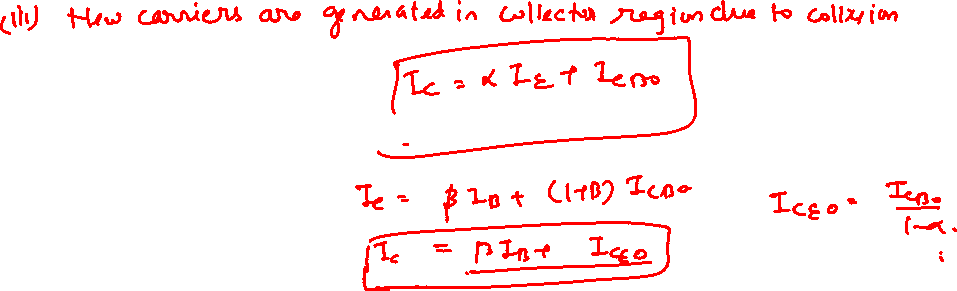 (iii) New carriers are generated in collector region due to collision
I_C = α I_E + I_CBO
I_C = β I_B + (1+β) I_CBO    I_CEO = I_CBO / 1-α.
I_C = β I_B + I_CEO